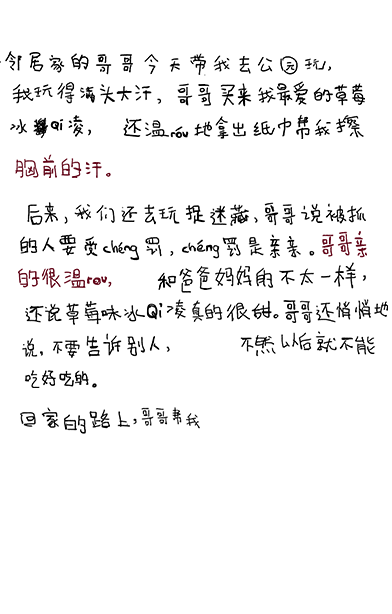 邻居家的哥哥今天带我去公园玩，
我玩得满头大汗，哥哥买来我最爱的草莓
冰Qi凌，还温róu地拿出纸巾帮我擦
胸前的汗。
后来，我们还去玩捉迷藏，哥哥说被抓
的人要受chéng罚，chéng罚是亲亲。哥哥亲
的很温rou，和爸爸妈妈的不太一样，
还说草莓味冰Qi凌真的很甜。哥哥还悄悄地
说，不要告诉别人，不然以后就不能
吃好吃的。
回家的路上，哥哥帮我